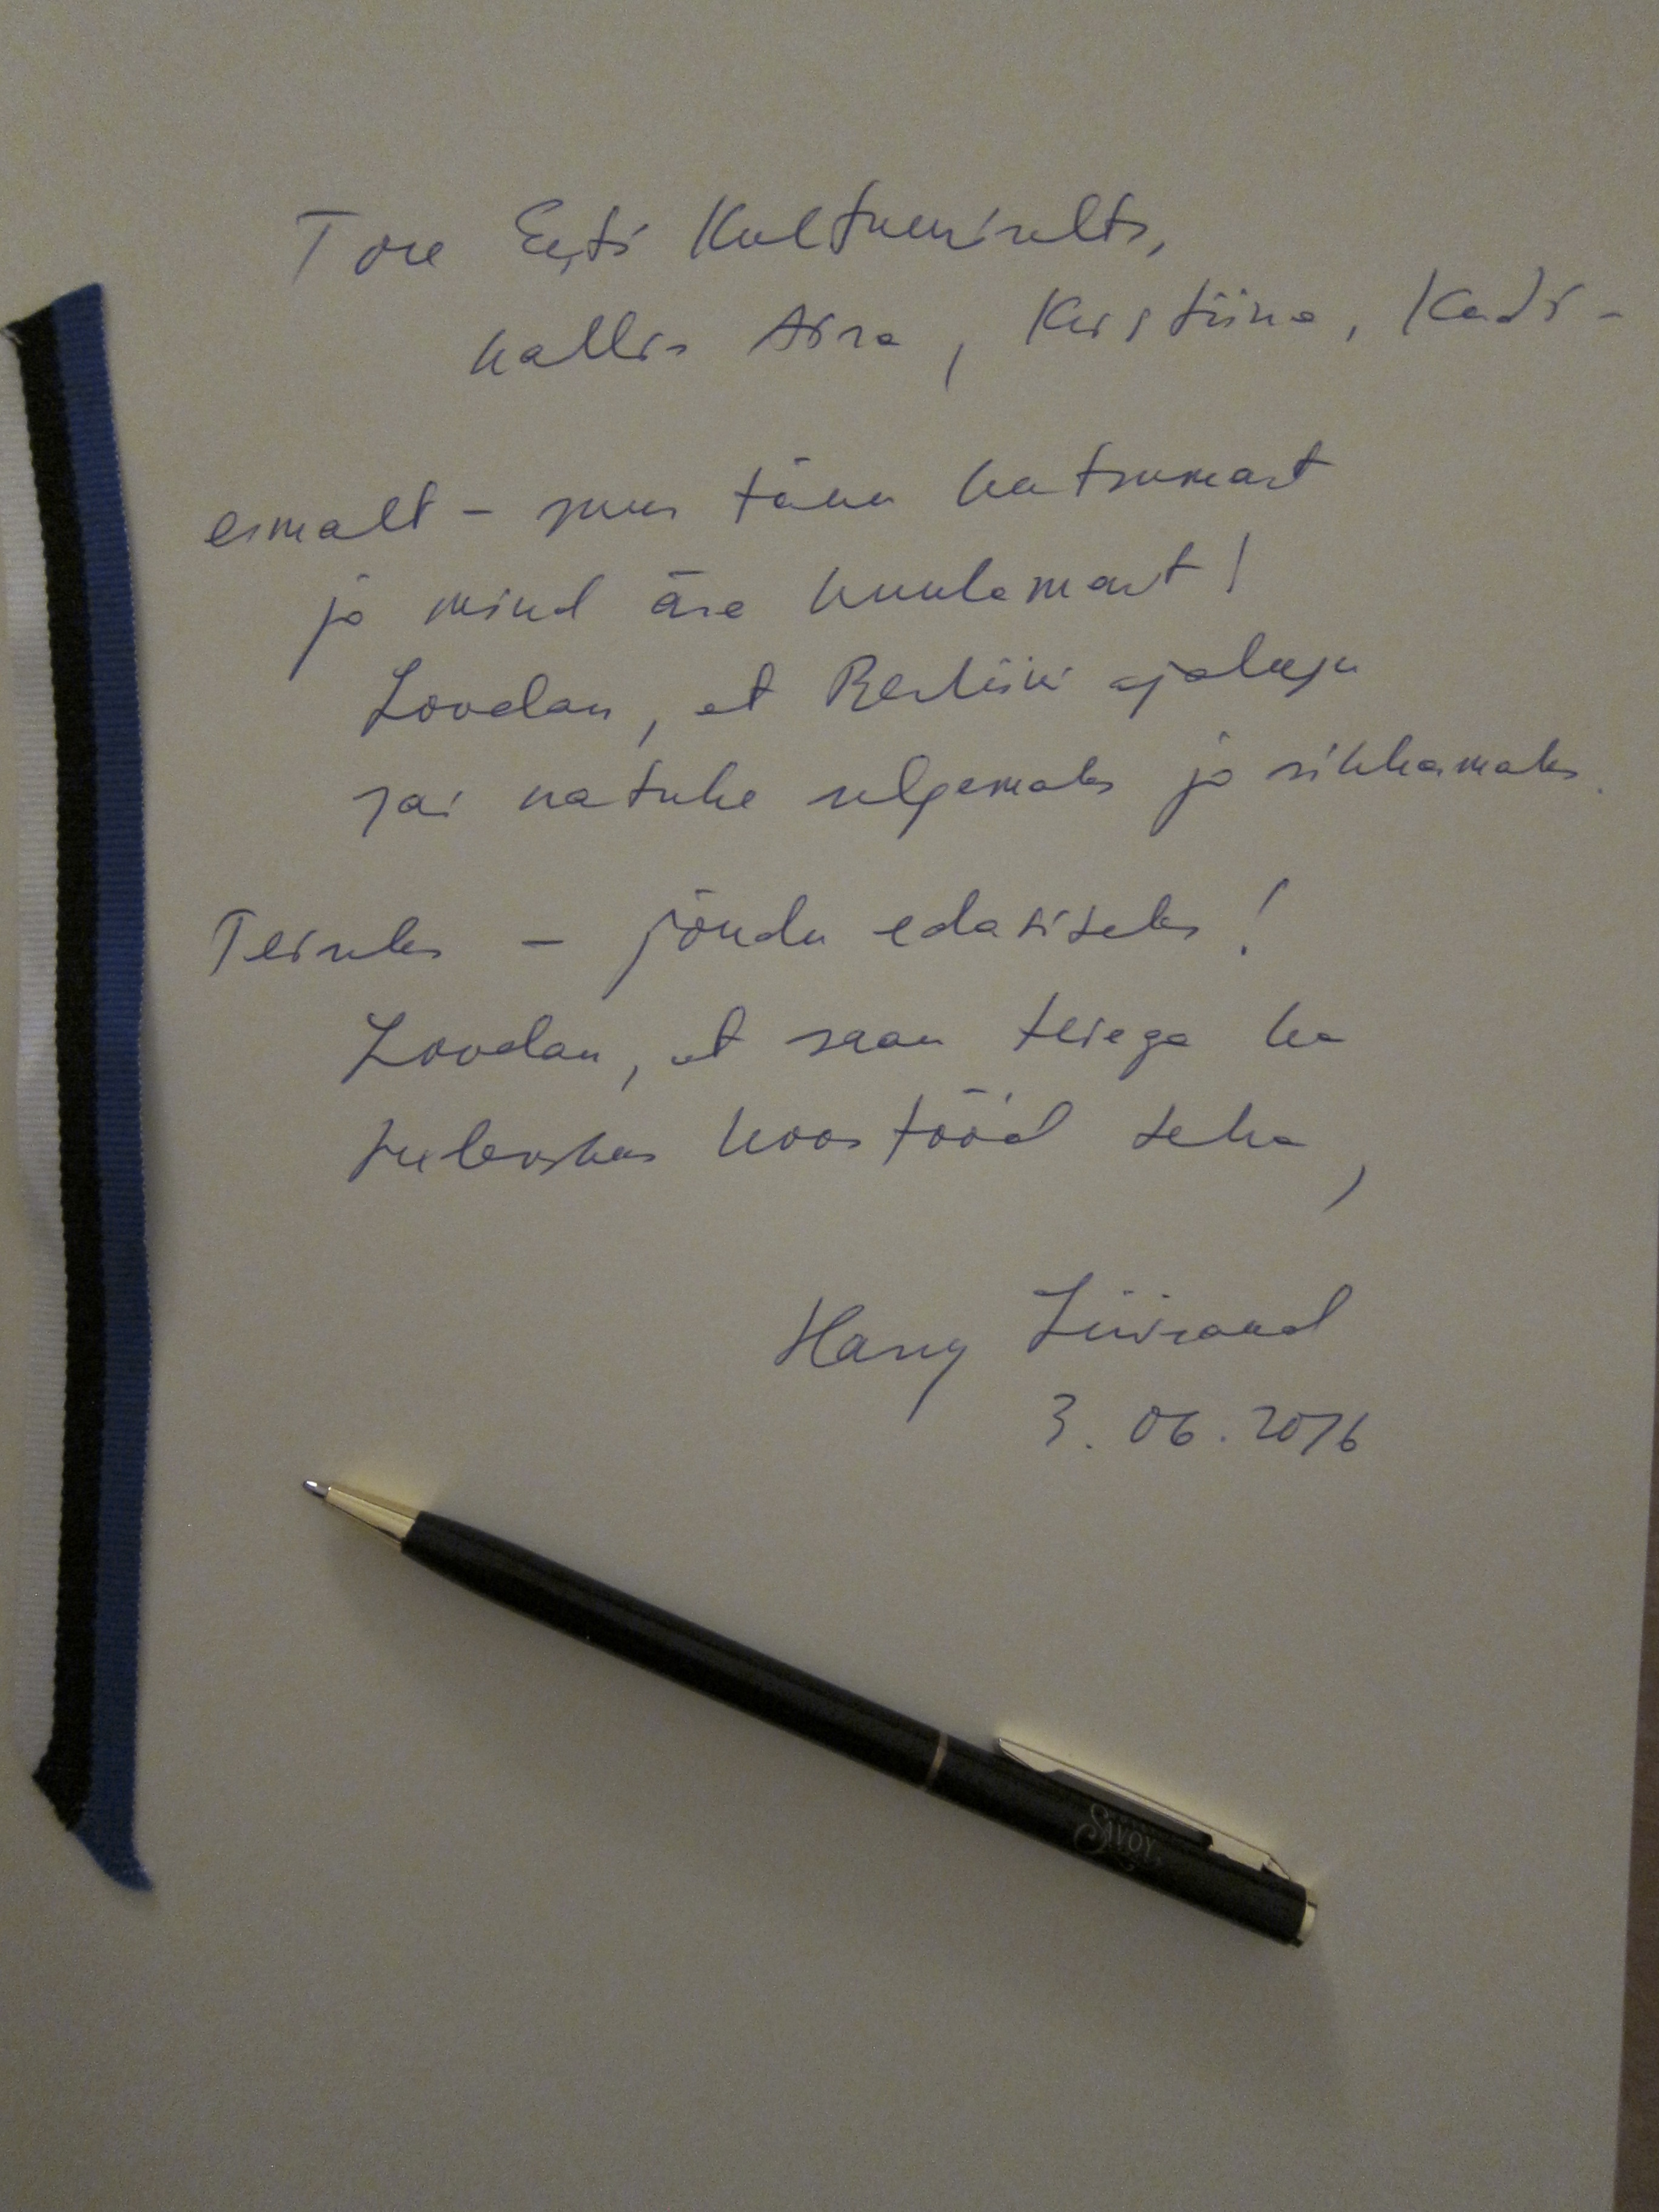 Tore Eesti Kultuuriselts,
kallis Aira, Kristiina, Kadi -
esmalt - suur tänu kutsumast
ja mind ära kuulamast!
Loodan, et Berliini ajalugu
sai natuke selgemaks ja rikkamaks.
Teiseks - jõudu edasiseks!
Loodan, et saan teiega ka
tulevikus koostööd teha,
Harry Liivrand
3.06.2016
SAVOY